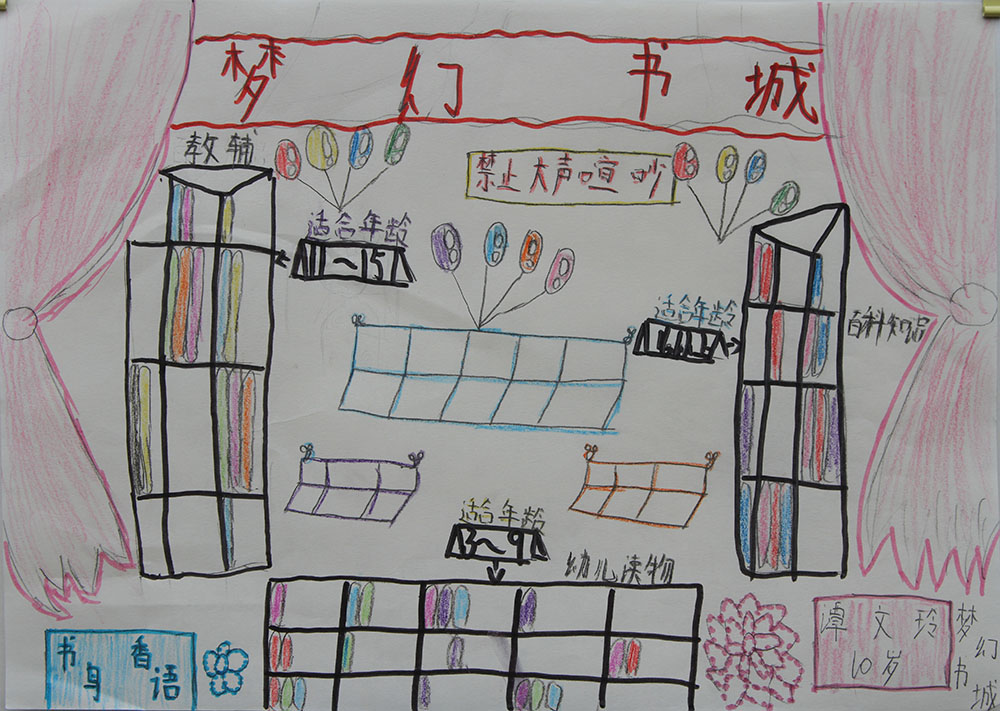 梦幻书城
教辅
禁止大声喧吵
适合年龄
11~15
适合年龄
百科知识
适合年龄
3~9
幼儿读物
书香
鸟语
谭文玲
10岁
梦幻书城